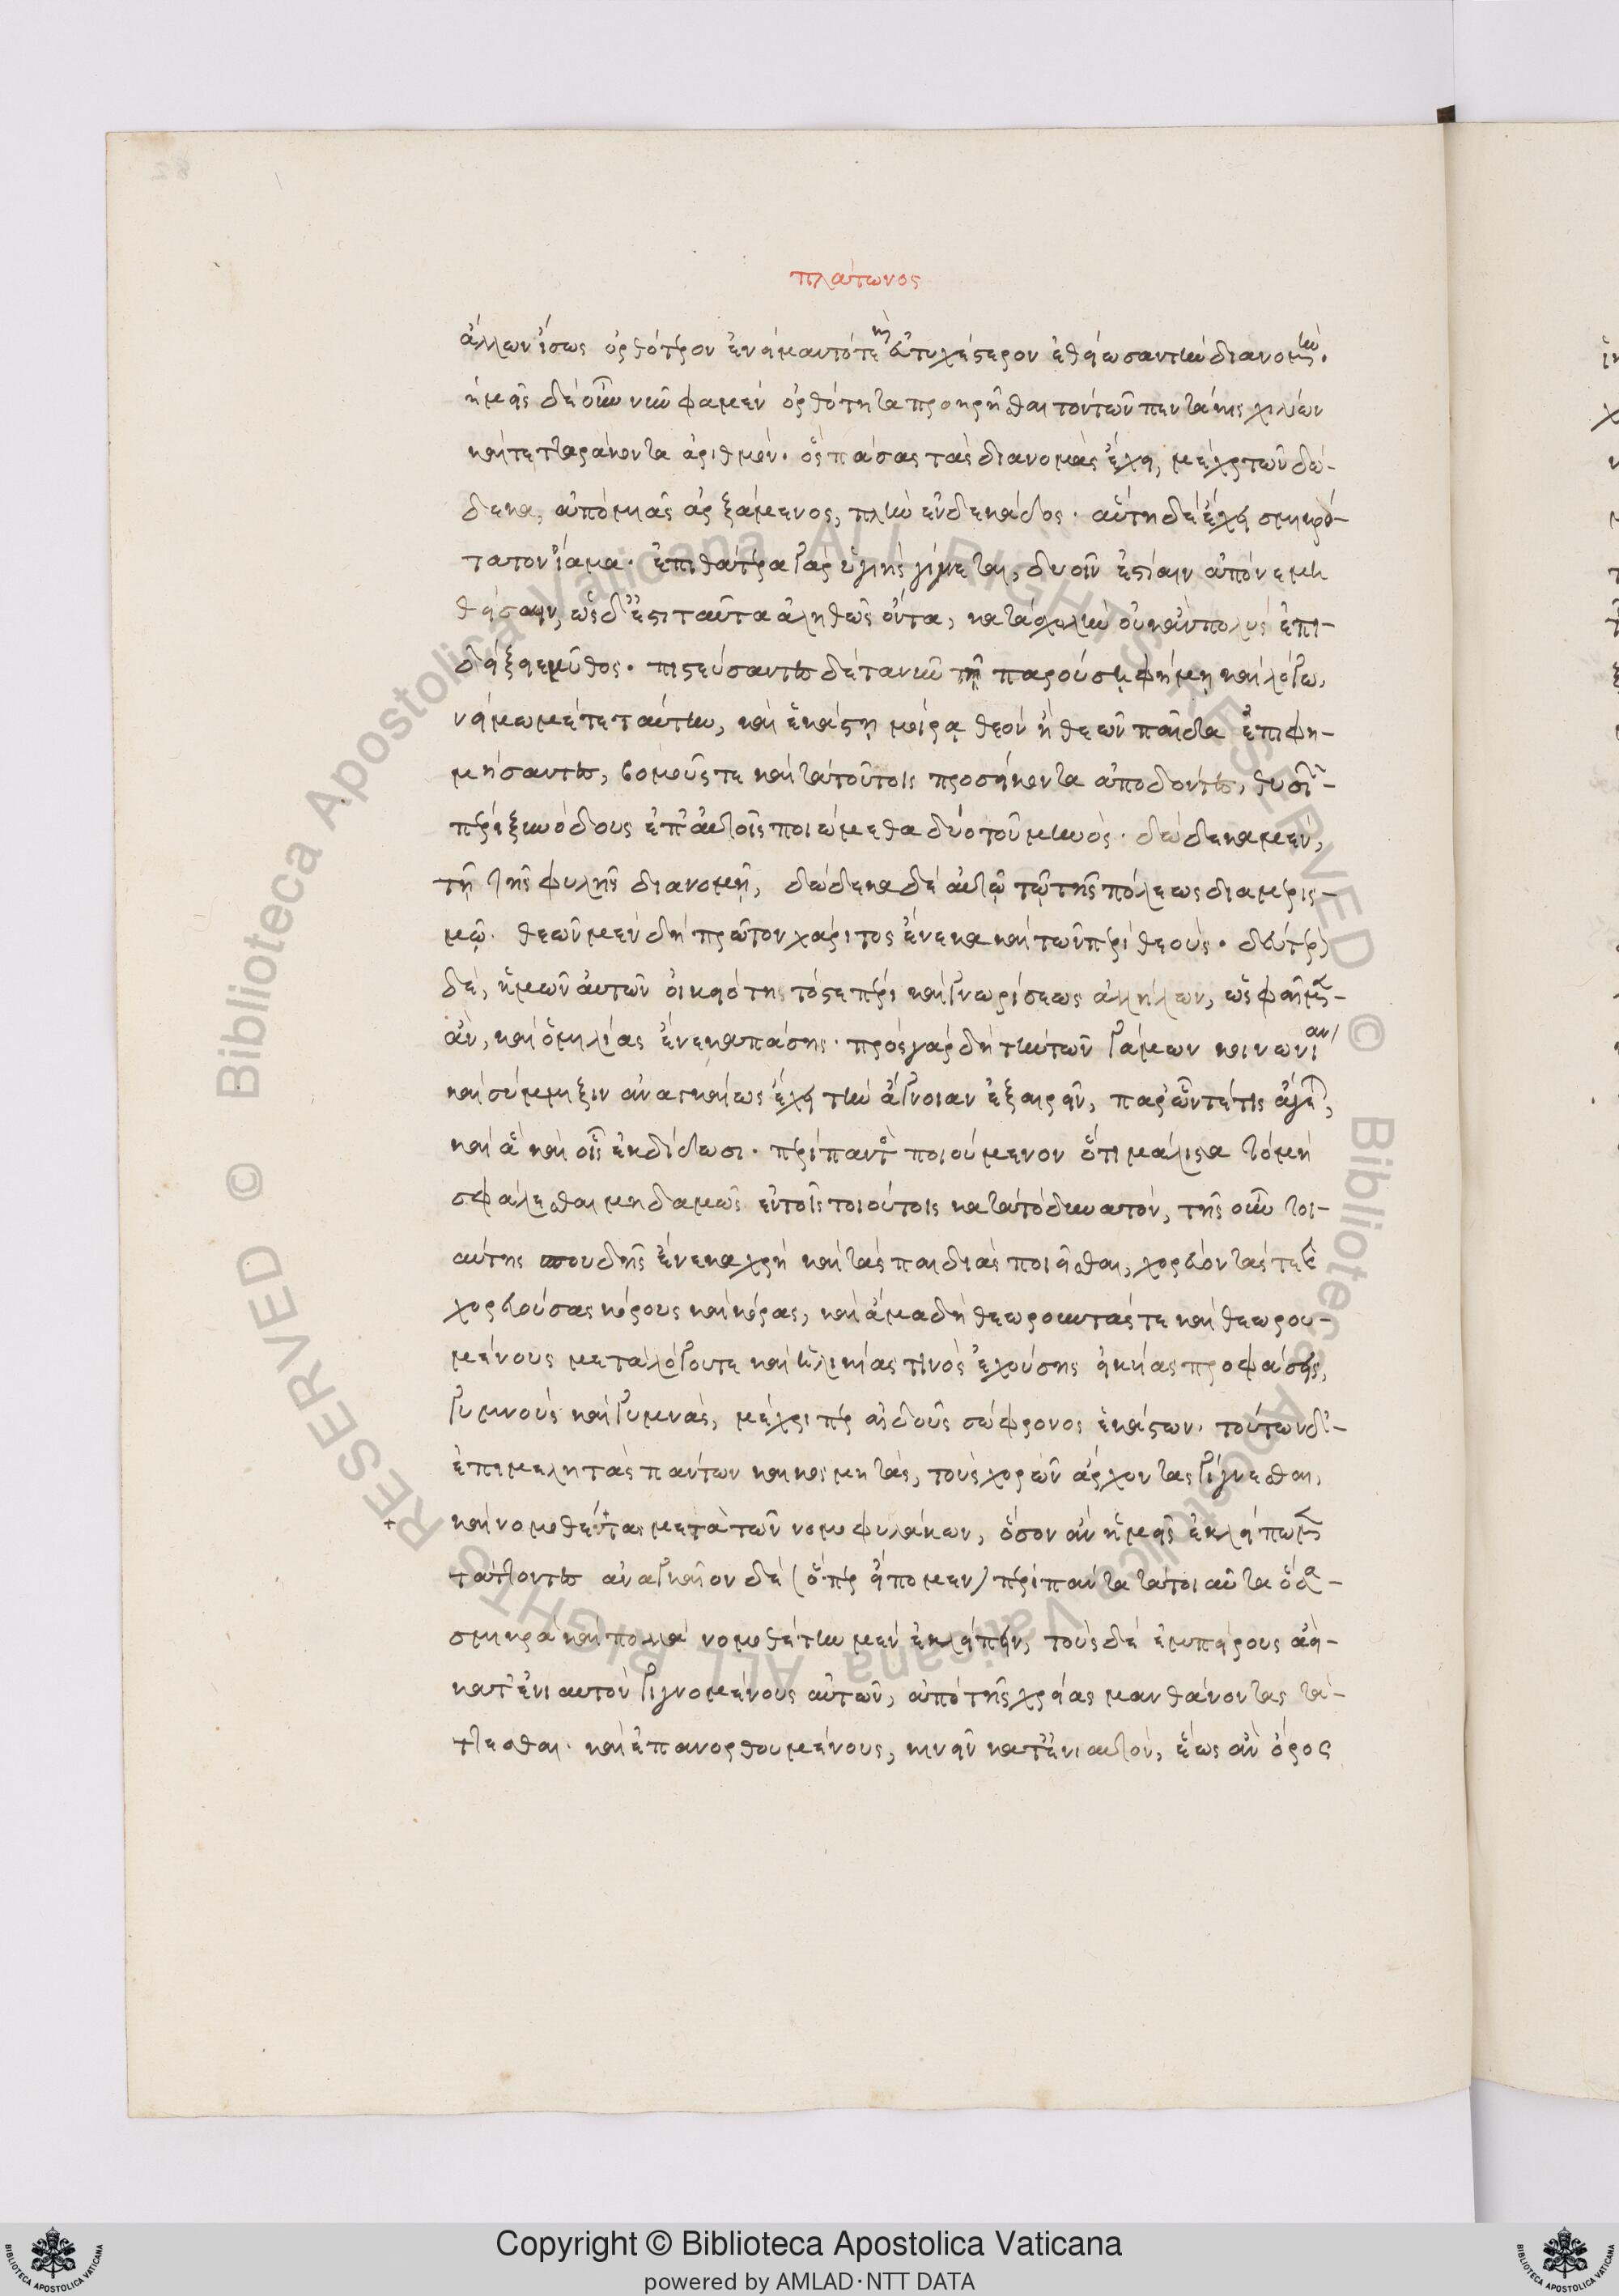 πλάτωνος
ἄλλων ἴσως ὀρθότερον ἐνείμαντό τε ἢ εὐτυχέστερον ἐθείωσαν τὴν διανομήν.
ἡμεῖς δὲ οὖν νῦν φαμὲν ὀρθότητα προῃρῆσθαι τὸν τῶν πεντάκις χιλίων
καὶ τετταράκοντα ἀριθμόν. ὃς πάσας τὰς διανομὰς ἔχει, μέχρι τῶν δώ-
δεκα, ἀπὸ μιᾶς ἀρξάμενος, πλὴν ἑνδεκάδος. αὕτη δὲ ἔχει σμικρό-
τατον ἴαμα. ἐπὶ θάτερα γὰρ ὑγιὴς γίγνεται, δυοῖν ἑστίαιν ἀπονεμη
θείσαιν, ὡς δ' ἔστι ταῦτα ἀληθῶς ὄντα, κατὰ σχολὴν οὐκ ἂν πολὺς ἐπι-
δείξειε μῦθος. πιστεύσαντες δὲ τανῦν τῇ παρούσῃ φήμῃ καὶ λόγῳ,
νείμωμέν τε ταύτην, καὶ ἑκάστῃ μοίρᾳ θεὸν ἢ θεῶν παῖδα ἐπιφη-
μήσαντες, βωμούς τε καὶ τὰ τούτοις προσήκοντα ἀποδόντες, θυσιῶν
πέρι ξυνόδους ἐπ' αὐτοῖς ποιώμεθα δύο τοῦ μηνός. δώδεκα μὲν,
τῇ τῆς φυλῆς διανομῇ, δώδεκα δὲ αὐτῷ τῷ τῆς πόλεως διαμερισ-
μῷ. θεῶν μὲν δὴ πρῶτον χάριτος ἕνεκα καὶ τῶν περὶ θεούς. δεύτερον
δὲ, ἡμῶν αὐτῶν οἰκειότητός τε πέρι καὶ γνωρίσεως ἀλλήλων, ὡς φαῖμεν
ἂν, καὶ ὁμιλίας ἕνεκα πάσης. πρὸς γὰρ δὴ τὴν τῶν γάμων κοινωνίαν
καὶ σύμμιξιν ἀναγκαίως ἔχει τὴν ἄγνοιαν ἐξαιρεῖν, παρ' ὧν τέ τις ἄγεται,
καὶ ἃ καὶ οἷς ἐκδίδωσι. περὶ παντὸς ποιούμενον ὅτι μάλιστα τὸ μὴ
σφάλεσθαι μηδαμῶς ἐν τοῖς τοιούτοις κατὰ τὸ δυνατόν, τῆς οὖν τοι-
αύτης σπουδῆς ἕνεκα χρὴ καὶ τὰς παιδιὰς ποιεῖσθαι, χορεύοντάς τε καὶ
χορευούσας κόρους καὶ κόρας, καὶ ἅμα δὴ θεωροῦντάς τε καὶ θεωρου-
μένους μετὰ λόγου τε καὶ ἡλικίας τινὸς ἐχούσης εἰκυίας προφάσεις,
γυμνοὺς καὶ γυμνάς, μέχρι περ αἰδοῦς σώφρονος ἑκάστων. τούτων δ'
ἐπιμελητὰς πάντων καὶ κοσμητὰς, τοὺς χορῶν ἄρχοντας γίγνεσθαι,
καὶ νομοθέτας μετὰ τῶν νομοφυλάκων, ὅσον ἂν ἡμεῖς ἐκλείπωμεν
τάττοντες ἀναγκαῖον δὲ (ὅπερ εἴπομεν) περὶ πάντα τὰ τοιαῦτα ὅσα
σμικρὰ καὶ πολλὰ νομοθέτην μὲν ἐκλείπειν, τοὺς δὲ ἐμπείρους ἀεὶ-
κατ' ἐνιαυτὸν γιγνομένους αὐτῶν, ἀπὸ τῆς χρείας μανθάνοντας τά-
ττεσθαι. καὶ ἐπανορθουμένους, κινεῖν κατ' ἐνιαυτόν, ἕως ἂν ὅρος
Copyright © Biblioteca Apostolica Vaticana
powered by AMLAD·NTT DATA